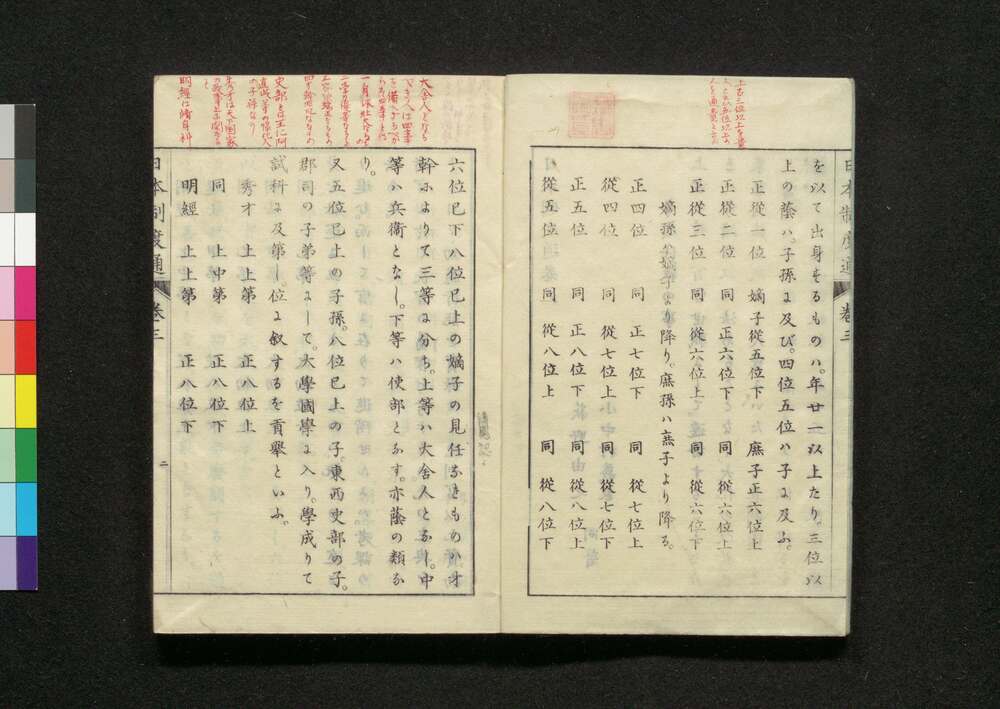 日本制度通 卷三
を以て出身をるもの八。年廿一以上たり。三位以
上の蔭ハ。子孫に及び。四位五位ハ子に及ふ。
正從一位 嫡子從五位下 庶子正六位上
正從二位 同 正六位下 同 從六位上
正從三位 同 從六位上 同 從六位下
嫡孫ハ嫡子より降り。庶孫ハ庶子より降る。
正四位 同 正七位下 同 從七位上
從四位 同 從七位上 同 從七位下
正五位 同 正八位下 同 從八位上
從五位 同 從八位上 同 從八位下
六位已下八位已上の嫡子の見任なきものハ才
幹によりて三等に分ち。上等ハ大舍人となし。中
等ハ兵衞となし。下等ハ使部となす。亦蔭の類な
り。
又五位已上の子孫。八位已上の子。東西史部の子。
郡司の子弟等にして。大學國學に入り。學成りて
試科に及第し。位に叙するを貢舉といふ。
秀才 上上第 正八位上
同 上中第 正八位下
明經 上上第 正八位下
日本制度通 卷三 二
大舍人となる
史部とは王仁阿
直岐等の歸化人
の子孫なり
秀才は天下國家
明經は脩身科